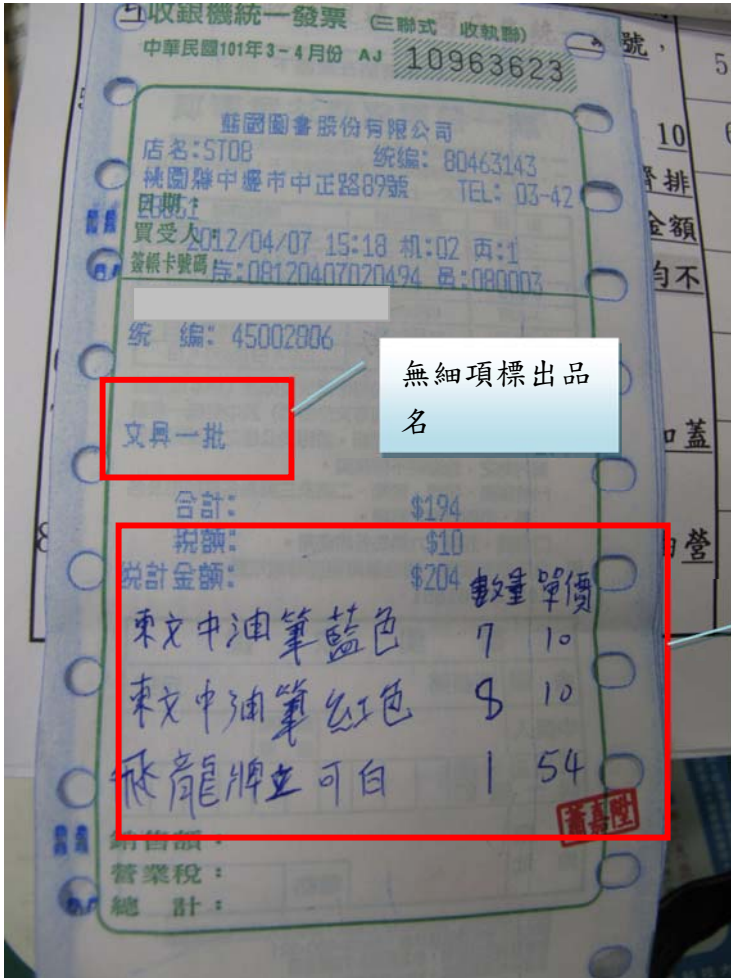 收銀機統一發票 (三聯式 收執聯)
中華民國101年3-4月份 AJ 10963623
號，
5
藍圖圖書股份有限公司
10
店名:STOB 統編: 80463143
桃園縣中壢市中正路89號 TEL: 03-42
排
日期:
28851
金額
買受人: 2012/04/07 15:18 机:02 頁:1
簽帳卡號碼: 序:08120407020494 員:080003
均不
統 編: 45002806
無細項標出品
名
文具一批
加蓋
合計: $194
稅額: $10
營
總計金額: $204
數量 單價
東文中油筆藍色 7 10
東文中油筆紅色 8 10
飛龍牌立可白 1 54
銷售額:
營業稅:
總計: